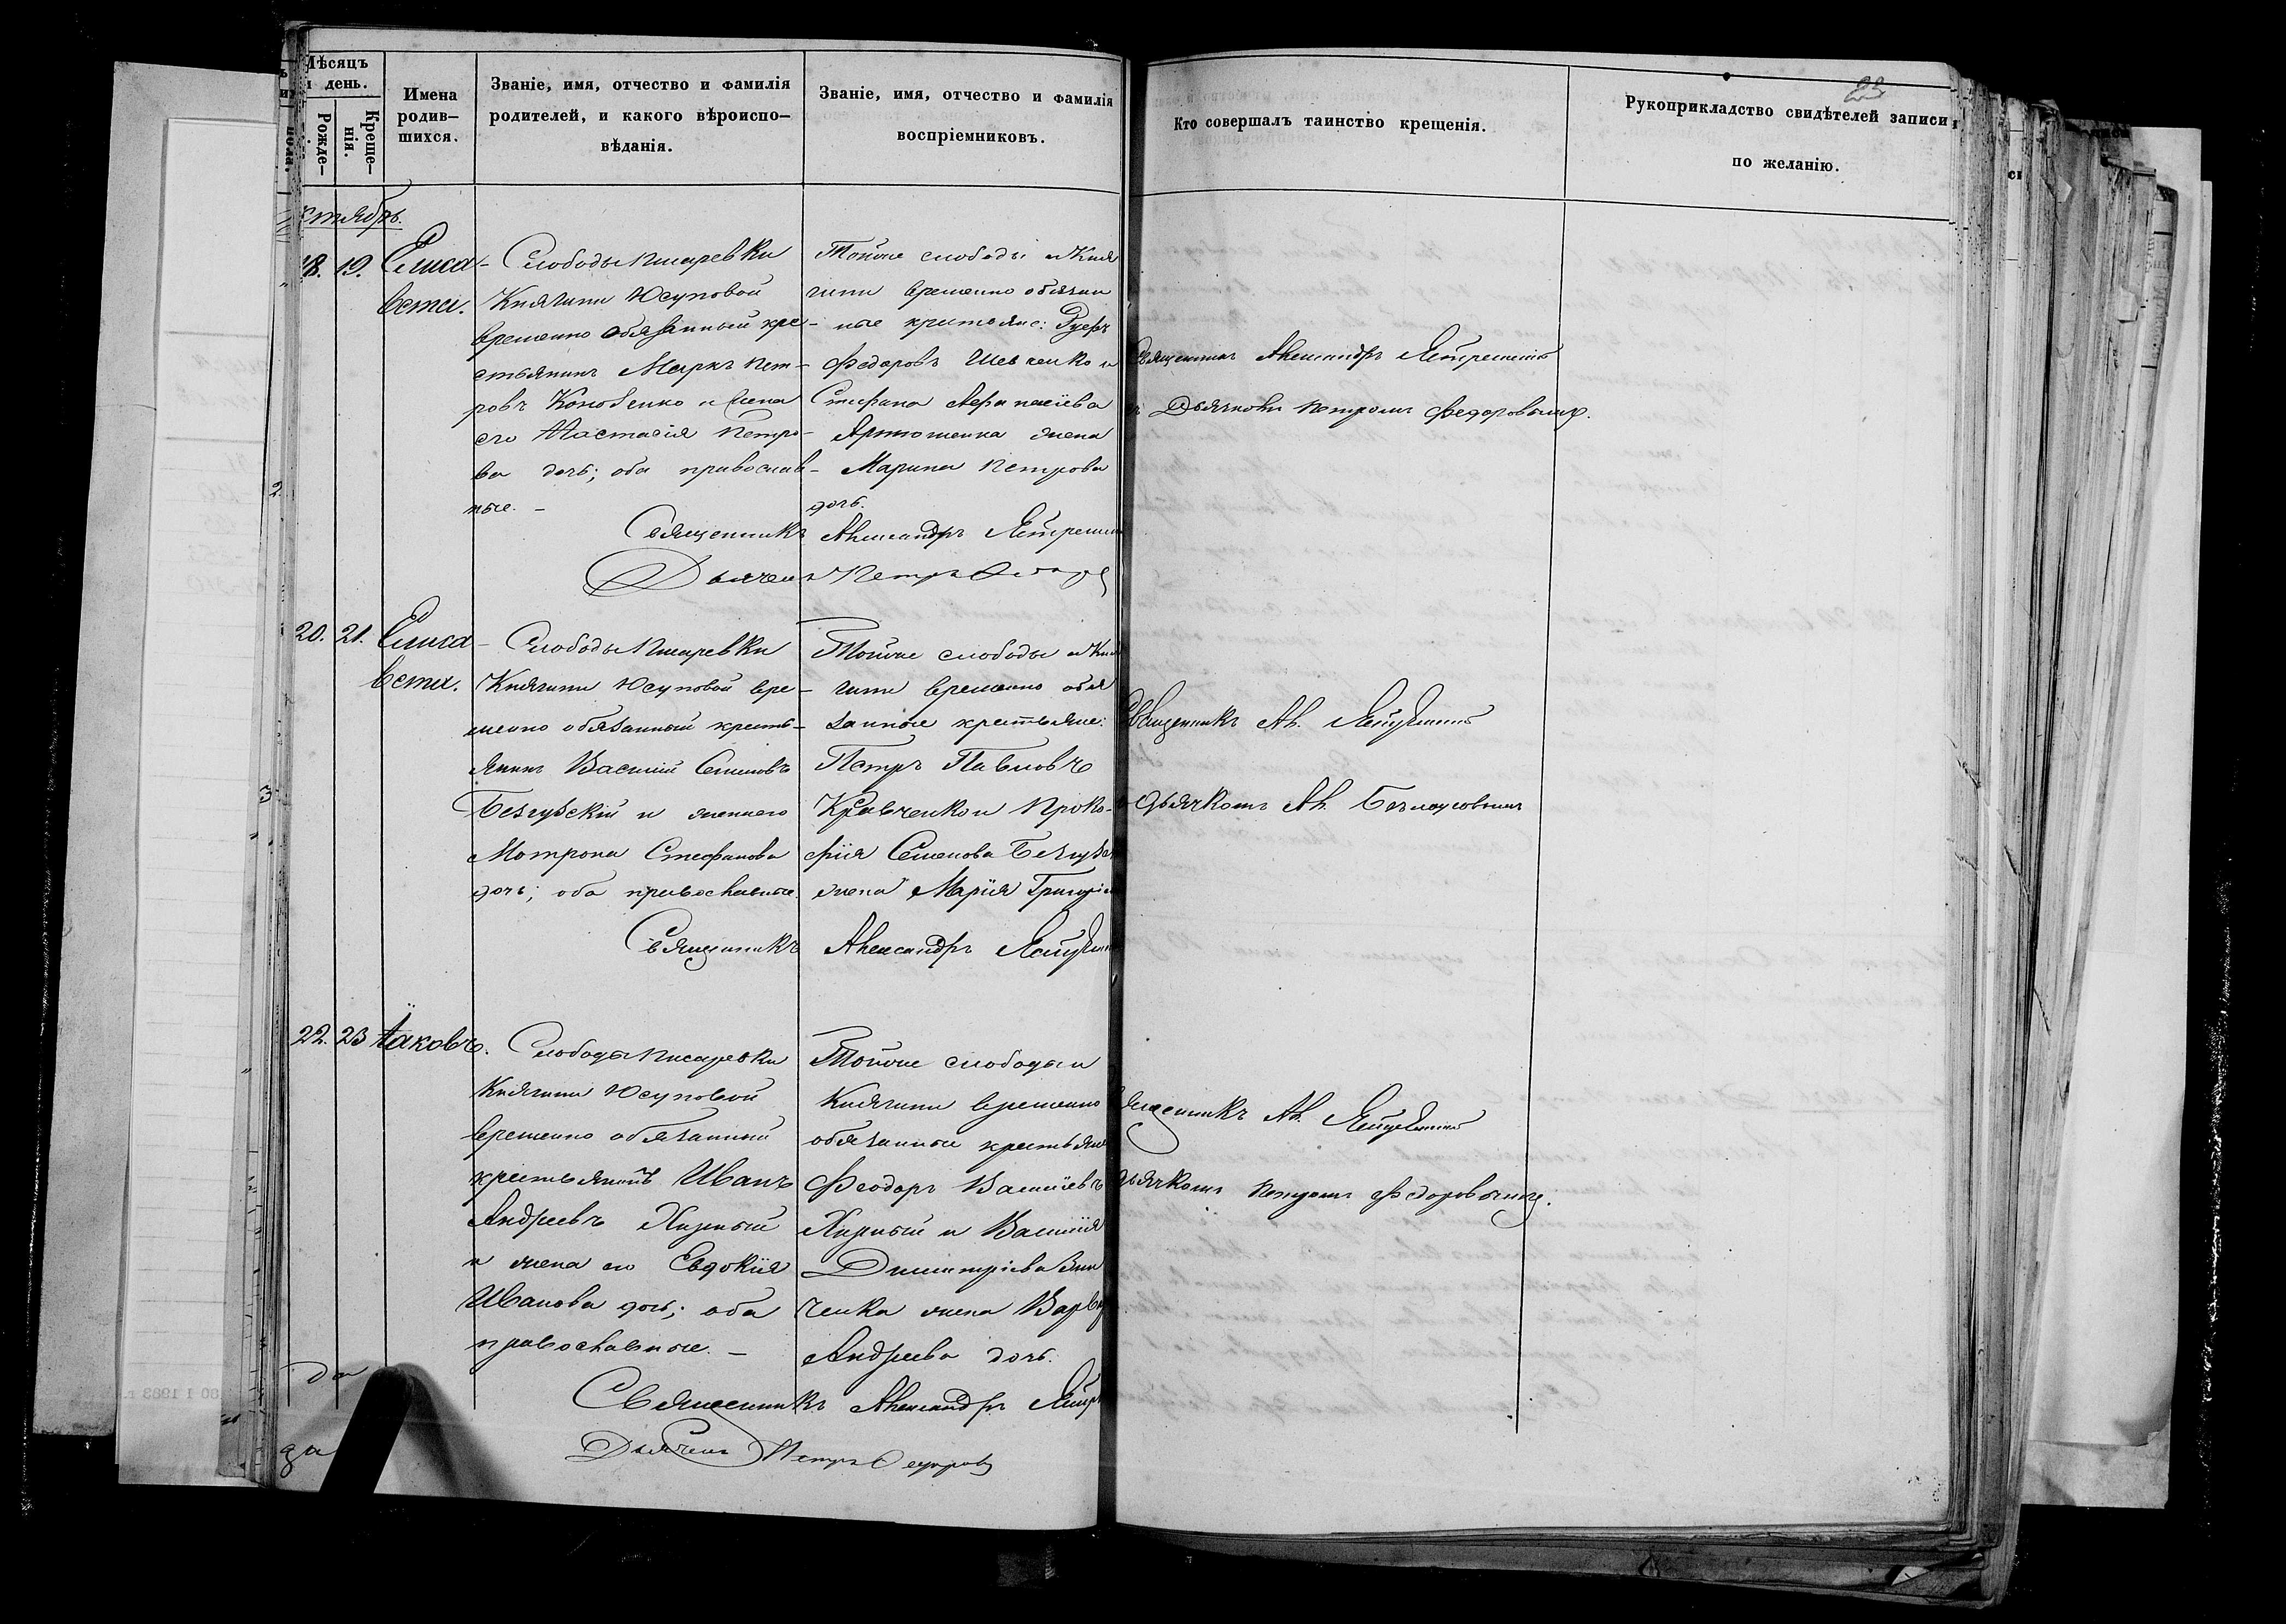 Мѣсяцъ
и день.
Рожде-
Креще-
нія.
Имена
родив-
шихся.
Званіе, имя, отчество и фамилія
родителей, и какого вѣроиспо-
вѣданія.
Званіе, имя, отчество и фамилія
воспріемниковъ.
Кто совершалъ таинство крещенія.
Рукоприкладство свидѣтелей записи
по желанію.
23
ктябрь.
18. 19. Елиса-
вета.
Слободы Писаревки
Княгини Юсуповой
временно обязанный кре-
стьянинъ Маркъ Пет-
ровъ Коновенко и жена
его Настасія Петро-
ва дочь; оба православ-
ные. -
Тойже слободы и Кня
гини временно обязан
ные крестьяне:
Федоровъ Шевченко и
Стефана
Артюшенка жена
Марина Петрова
дочь.
Священникъ Александръ
Дьячекъ Петръ
Священникъ Александръ
Дьячкомъ Петромъ Федоровымъ.
20. 21. Елиса-
вета.
Слободы Писаревки
Княгини Юсуповой вре-
менно обязанный кресть-
янинъ Василій Семеновъ
и жена его
Мотрона Стефанова
дочь; оба православные.
Тойже слободы и Кня
гини временно обя
занные крестьяне:
Петръ Павловъ
Кравченко и Проко-
фія Семенова
жена Марія
Священникъ Александръ
Священникъ Ал.
дьячкомъ Ал.
22. 23 Іаковъ.
Слободы Писаревки
Княгини Юсуповой
временно обязанный
крестьянинъ Иванъ
Андреевъ Хирный
и жена его Евдокія
Иванова дочь; оба
православные. -
Тойже слободы и
Княгини временно
обязанные крестьяне
Феодоръ Василіевъ
Хирный и Василія
Димитріева
ченка жена
Андреева дочь.
Священникъ Александръ
Дьячекъ Петръ Федоровъ
Ал.
дьячкомъ Петромъ Федоровымъ.